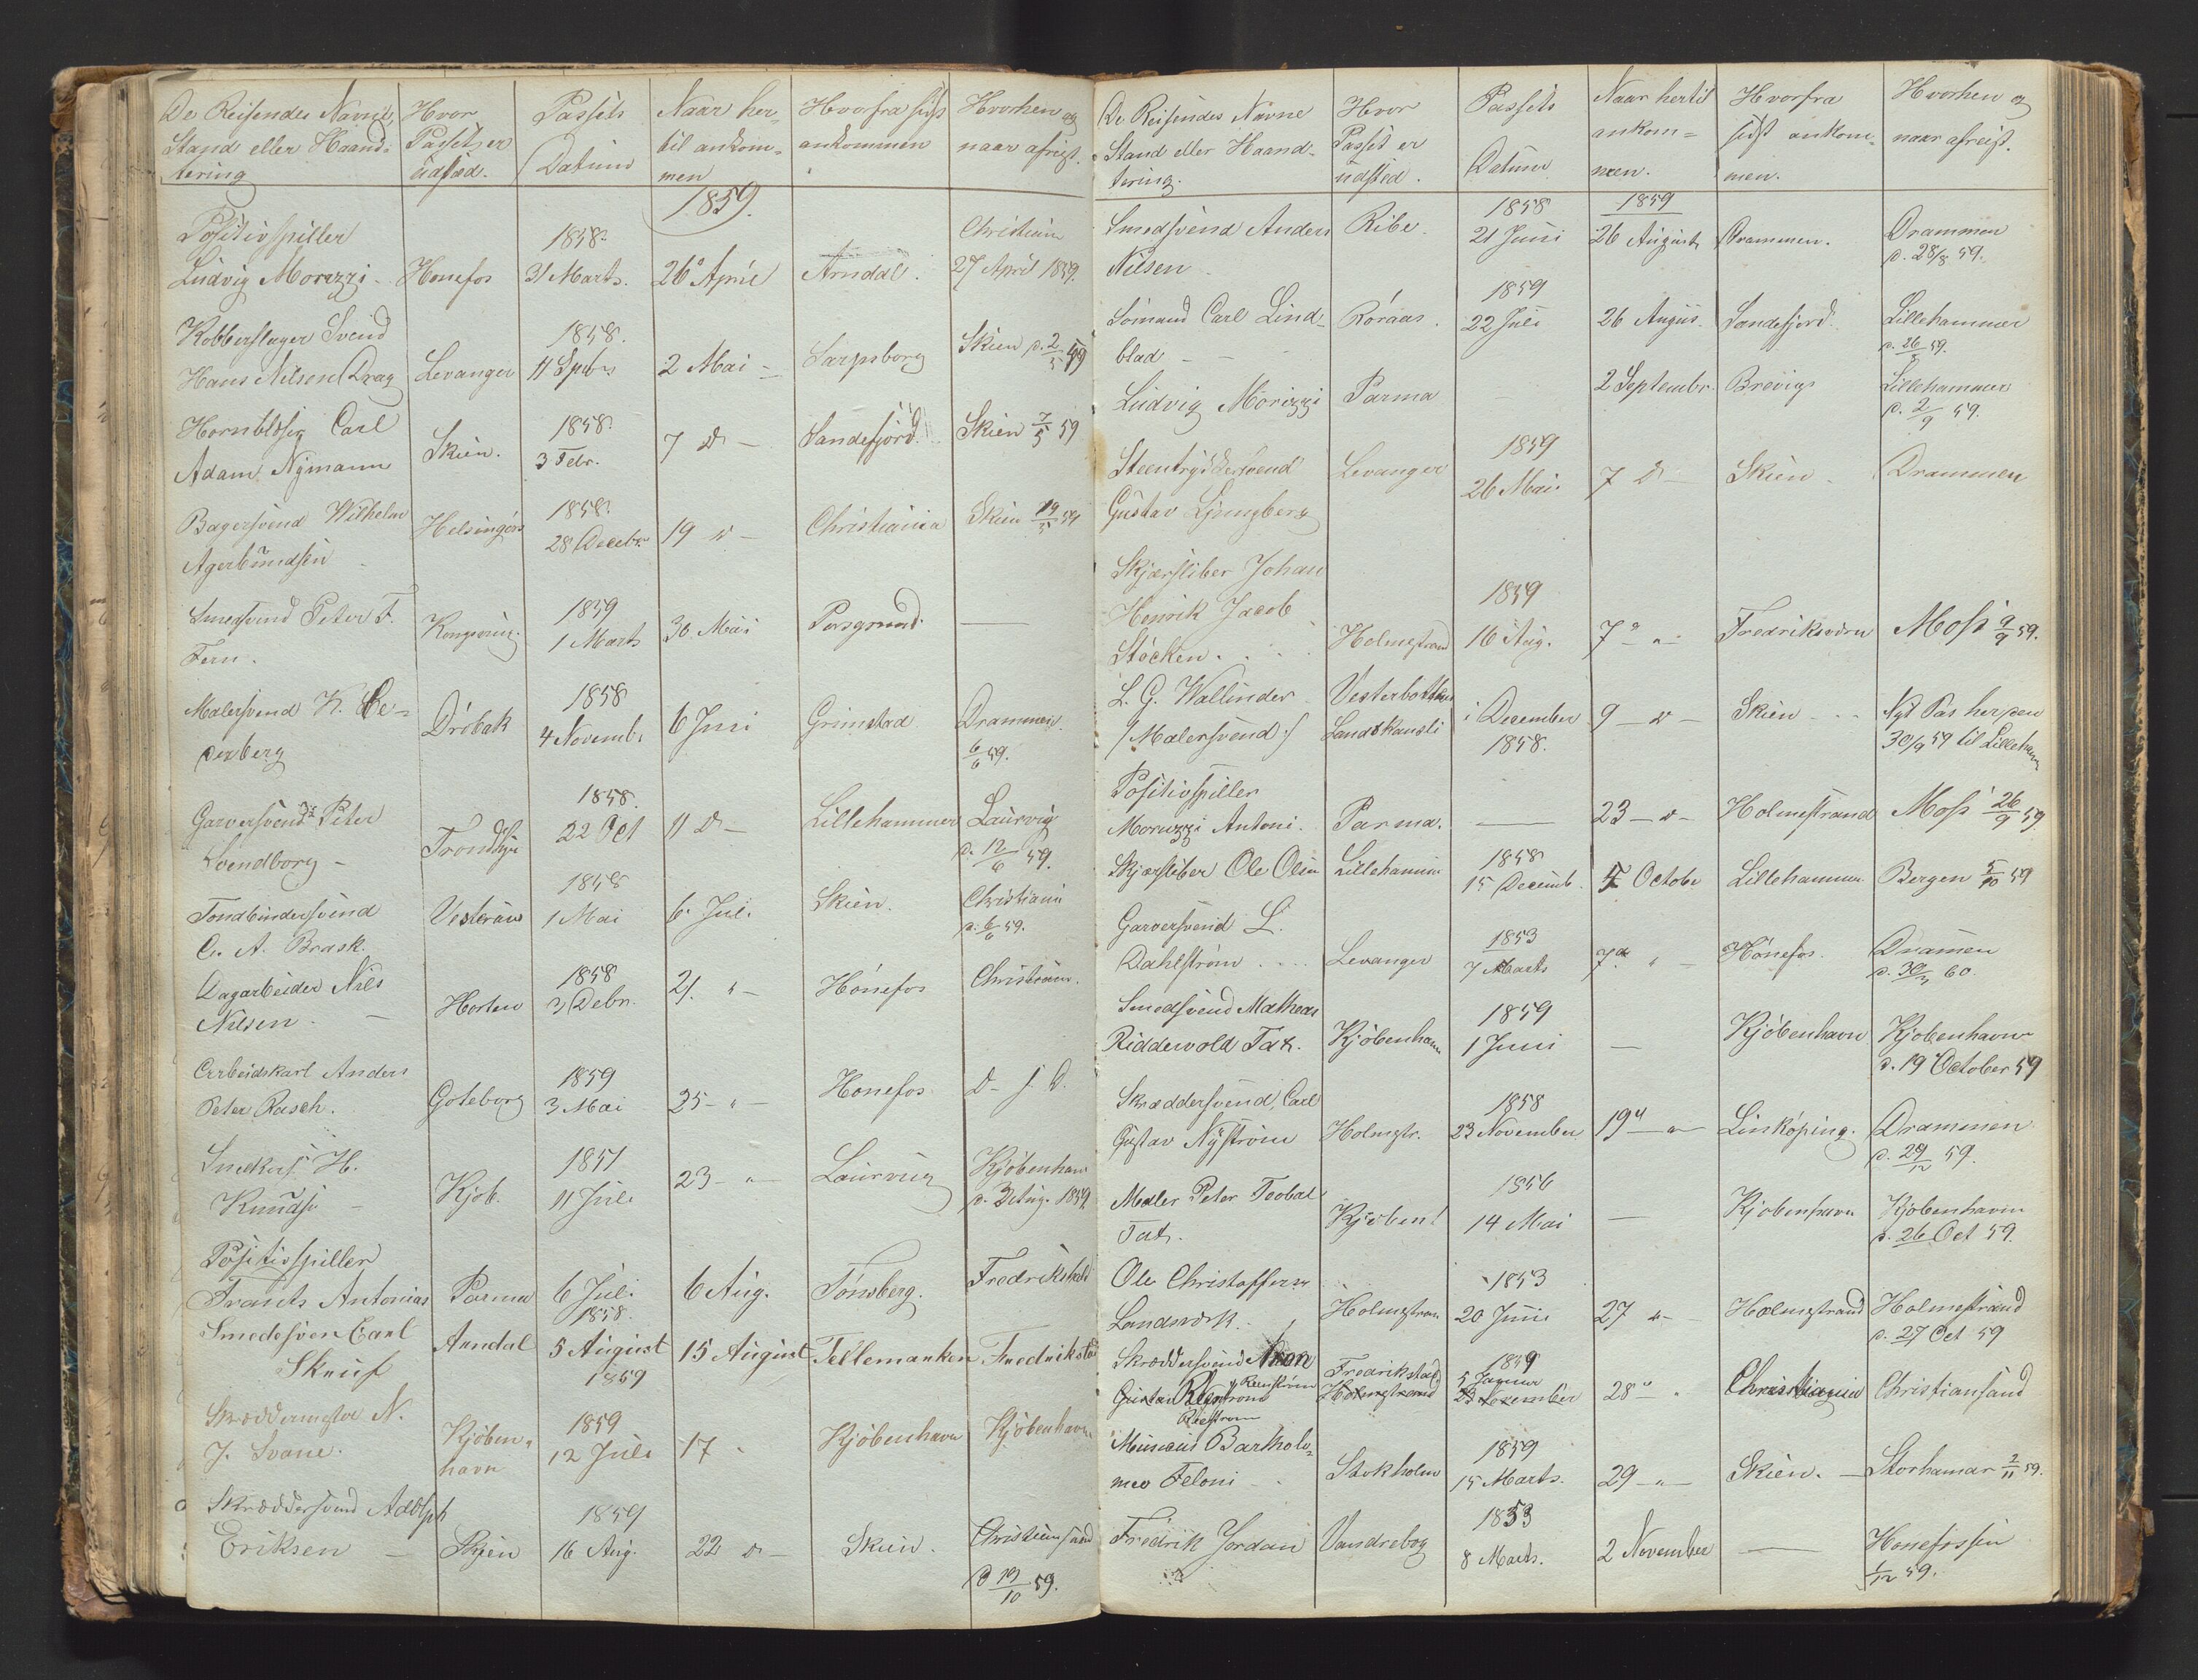 De Reisendes Navne, Hvor Passets Naar her- Hvorfra sidst Hvorhen og
Stand eller Haand- Passet er Datum til ankom- ankommen naar afreist.
tering udsted. men
1859.
Positivspiller 1858. Christiania
Ludvig Morizzi - Hønefos 31 Marts. 26 April Arndal. 27 April 1859.
Kobberslager Svend 1858.
Hans Nilsen Drag Levanger 11 Spbr 2 Mai - Sarpsborg Skien d. 2/5 59
Hornblæser Carl 1858.
Adam Nymann Skien. 3 Febr. 7 D - Sandefjord. Skien 7/5 59
Bagersvend Wilhelm Helsingør 1858. Skien 19/5 59
Agerbundsen 28 Decebr 19 D - Christiania
Smedsvend Peter F. 1859
Fern. Kongsving. 1 Marts 30 Mai Porsgrund. —
Malersvend K. Ce- 1858
derberg Drøbak 4 Novembr 6 Juni Grimstad Drammen 6/6 59.
Garversvend Peter 1858.
Svendborg - Trondhj 22 Oct 11 D - Lillehammer Laurvig
d. 12/6 59.
Tøndbindersvend 1858
C. A. Brask. Vesteraas 1 Mai 6 Juli Skien. Christiania
d. 6/6 59.
Dagarbeider Nils 1858
Nilsen - Horten 3 Debr. 21. " - Hønefos Christiania.
Arbeidskarl Anders 1859
Peter Rasch. Gøteborg 3 Mai 25 - " - Hønefos D - s. D.
Snedkers. H. 1851
Knudsen - Kjøb. 11 Juli 23 - " - Laurvig Kjøbenhavn
d. 2 Aug. 1859
Positivspiller
Frants Antonias Parma 6 Juli 1858. 6 Aug. Tønsberg. Fredrikshald
Smedesven Carl
Skruf Arndal 5 August 1859 15 August Tellemarken Fredriksta
Skræddermester N. 1859
J. Svane. Kjøben-havn 12 Juli 17 " Kjøbenhavn Kjøbenhavn
Skræddersvend Adolph 1859
Eriksen - Skien 16 Aug. 22 D - Skien. Christiansand
d 19/10 59.
De Reisendes Navne Hvor Passets Naar hertil Hvorfra Hvorhen og
Stand eller Haand- Passet er Datum ankom- sidst ankom- naar afreist.
tering. udsted. men. men.
Smedsvend Anders Ribe. 1858 1859
Nilsen 21 Juni 26 August Drammen. Drammen
d. 28/8 59.
Sømand Carl Lind- Røraas. 1859
blad - 22 Juli 26 Augus. Sandefjord Lillehammer
d. 26/8 59.
Ludvig Morizzi Parma - 2 Septembr. Brevig Lillehammer
d. 2/9 59.
Steentrykkersvend Levanger 1859
Gustav Ljungberg 26 Mai 7 D - Skien Drammen
Skjærsliber Johan
Henrik Jacob 1859
Støcken. Holmestrand 16 Aug. 7 " - Fredriksværn Moss 9/9 59.
L. G. Wallinder Vesterbottens
/Malersvend:/ Landskansli i December 1858. 9 - D - Skien - Nyt Pas her den
30/9 59 til Lilleham
Positivspiller
Moruzzi Antoni. Parma. — 23 - D - Holmestrand Moss 26/9 59
Skjærsliber Ole Olsen Lillehammer 1858
15 Decemb. 5 October Lillehammer Bergen 5/10 59
Garversvend L. 1853
Dahlstrøm Levanger 7 Marts 7 " - Hønefos. Dramen
d. 30/3 60.
Smedsvend Mathæus 1859
Ridderwold Fat. Kjøbenhavn 1 Juni — Kjøbenhavn Kjøbenhavn
d. 19 October 59
Skræddersvend, Carl 1858
Gustav Nystrøm Holmestr. 23 November 19 " - Linkøping. Drammen
d. 29/12 59.
Maler Peter Teobal 1856
Fat. Kjøbenh 14 Mai — Kjøbenhavn Kjøbenhavn
d. 26 Oct 59.
Ole Christoffersr 1853
Landsværk. Holmestran 20 Juni 27 " - Holmestrand Holmestrand
d. 27 Oct 59
Skræddersvend Aron Fredrikstad 1859
5 Januar
Gustav Holmestrand 23 November 28 " " Christiania Christiansand
Musicus Bartholo- 1859
meo Feloni Stokholm 15 Marts. 29 - " - Skien. - Storhamar 2/11 59.
Fredrik Jordan Vandrebog 1853
8 Marts. 2 November — Hønefossen
1/12 59.